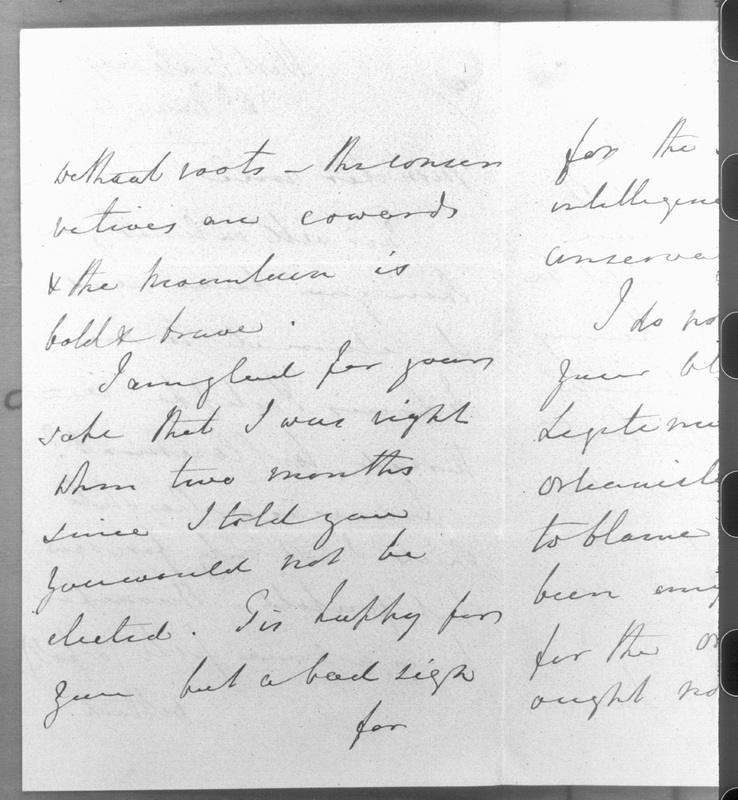 without roots – the conser
vatives are cowards
& the mountain is
bold & brave.
I am glad for your
sake that I was right
when two months
since I told you
you would not be
elected. Tis happy for
you but a bad sign
for
for the
intelligence
conserva
I do no
your bl
Legitemi
orleanist
to blame
been
for the or
ought no